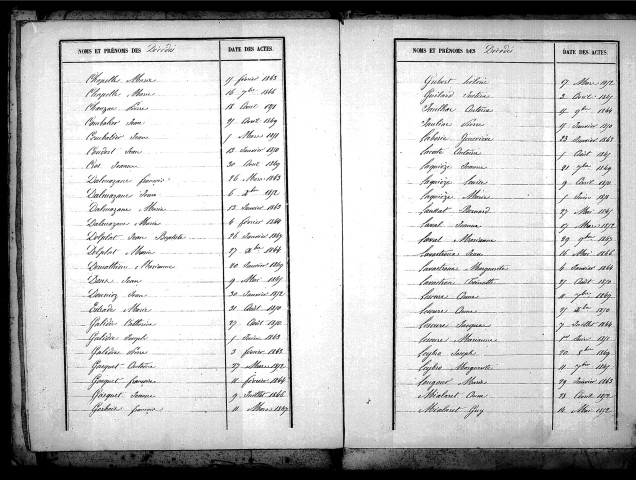 NOMS ET PRÉNOMS DES Décédés DATE DES ACTES.
Chapelle Marie 17 février 1863
Chapelle Marie 16 7bre 1866
Chauzac Pierre 18 Avril 1871
Combatier Jean 27 Avril 1869
Combatier Jean 5 Mars 1871
Coudert Jean 12 Janvier 1870
Cros Jeanne 30 Avril 1869
Dalmazane françois 26 Mars 1863
Dalmazane Jean 6 Xbre 1872
Dalmazane Marie 13 Janvier 1863
Dalmazane Marie 6 février 1870
Delpilat Jean Baptiste 26 Janvier 1867
Delpilat Marie 27 Xbre 1864
Demathieu Marianne 20 Janvier 1869
Dans Jean 9 Mai 1867
Donnioz Jean 30 Janvier 1872
Estrade Marie 31 Août 1870
Galidie Catherine 27 Août 1870
Galidie Joseph 5 Juin 1863
Galidie Pierre 3 février 1863
Gasquet Antoine 27 Mars 1872
Gasquet françoise 11 février 1864
Gasquet Jeanne 9 Juillet 1866
Gerbaix françois 11 Mars 1867
NOMS ET PRÉNOMS DES Décédés DATE DES ACTES.
Guibert Antoine 27 Mars 1872
Guitard Justine 2 Avril 1867
Jauilhac Antoine 11 9bre 1864
Jauline Pierre 17 Janvier 1870
Laborie Geneviève 23 Janvier 1863
Lacoste Antoine 5 Août 1867
Laquièze Jeanne 21 7bre 1869
Laquièze Louise 9 Avril 1871
Laquièze Marie 5 Juin 1871
Laussat Bernard 27 Mai 1867
Laval Jeanne 17 Mars 1872
Laval Marianne 29 9bre 1867
Lavastrou Jean 16 Mai 1866
Lavastrou Marguerite 6 Janvier 1864
Lavastrou Toinette 27 Août 1870
Lescure Anne 11 7bre 1869
Lescure Anne 27 Xbre 1870
Lescure Jacques 7 Juillet 1864
Lescure Marianne 1er Juin 1871
Leybro Joseph 20 8bre 1869
Leybro Marguerite 11 7bre 1867
Longant Marie 29 Janvier 1863
Mialaret Anne 28 Avril 1872
Mialaret Guy 14 Mai 1872